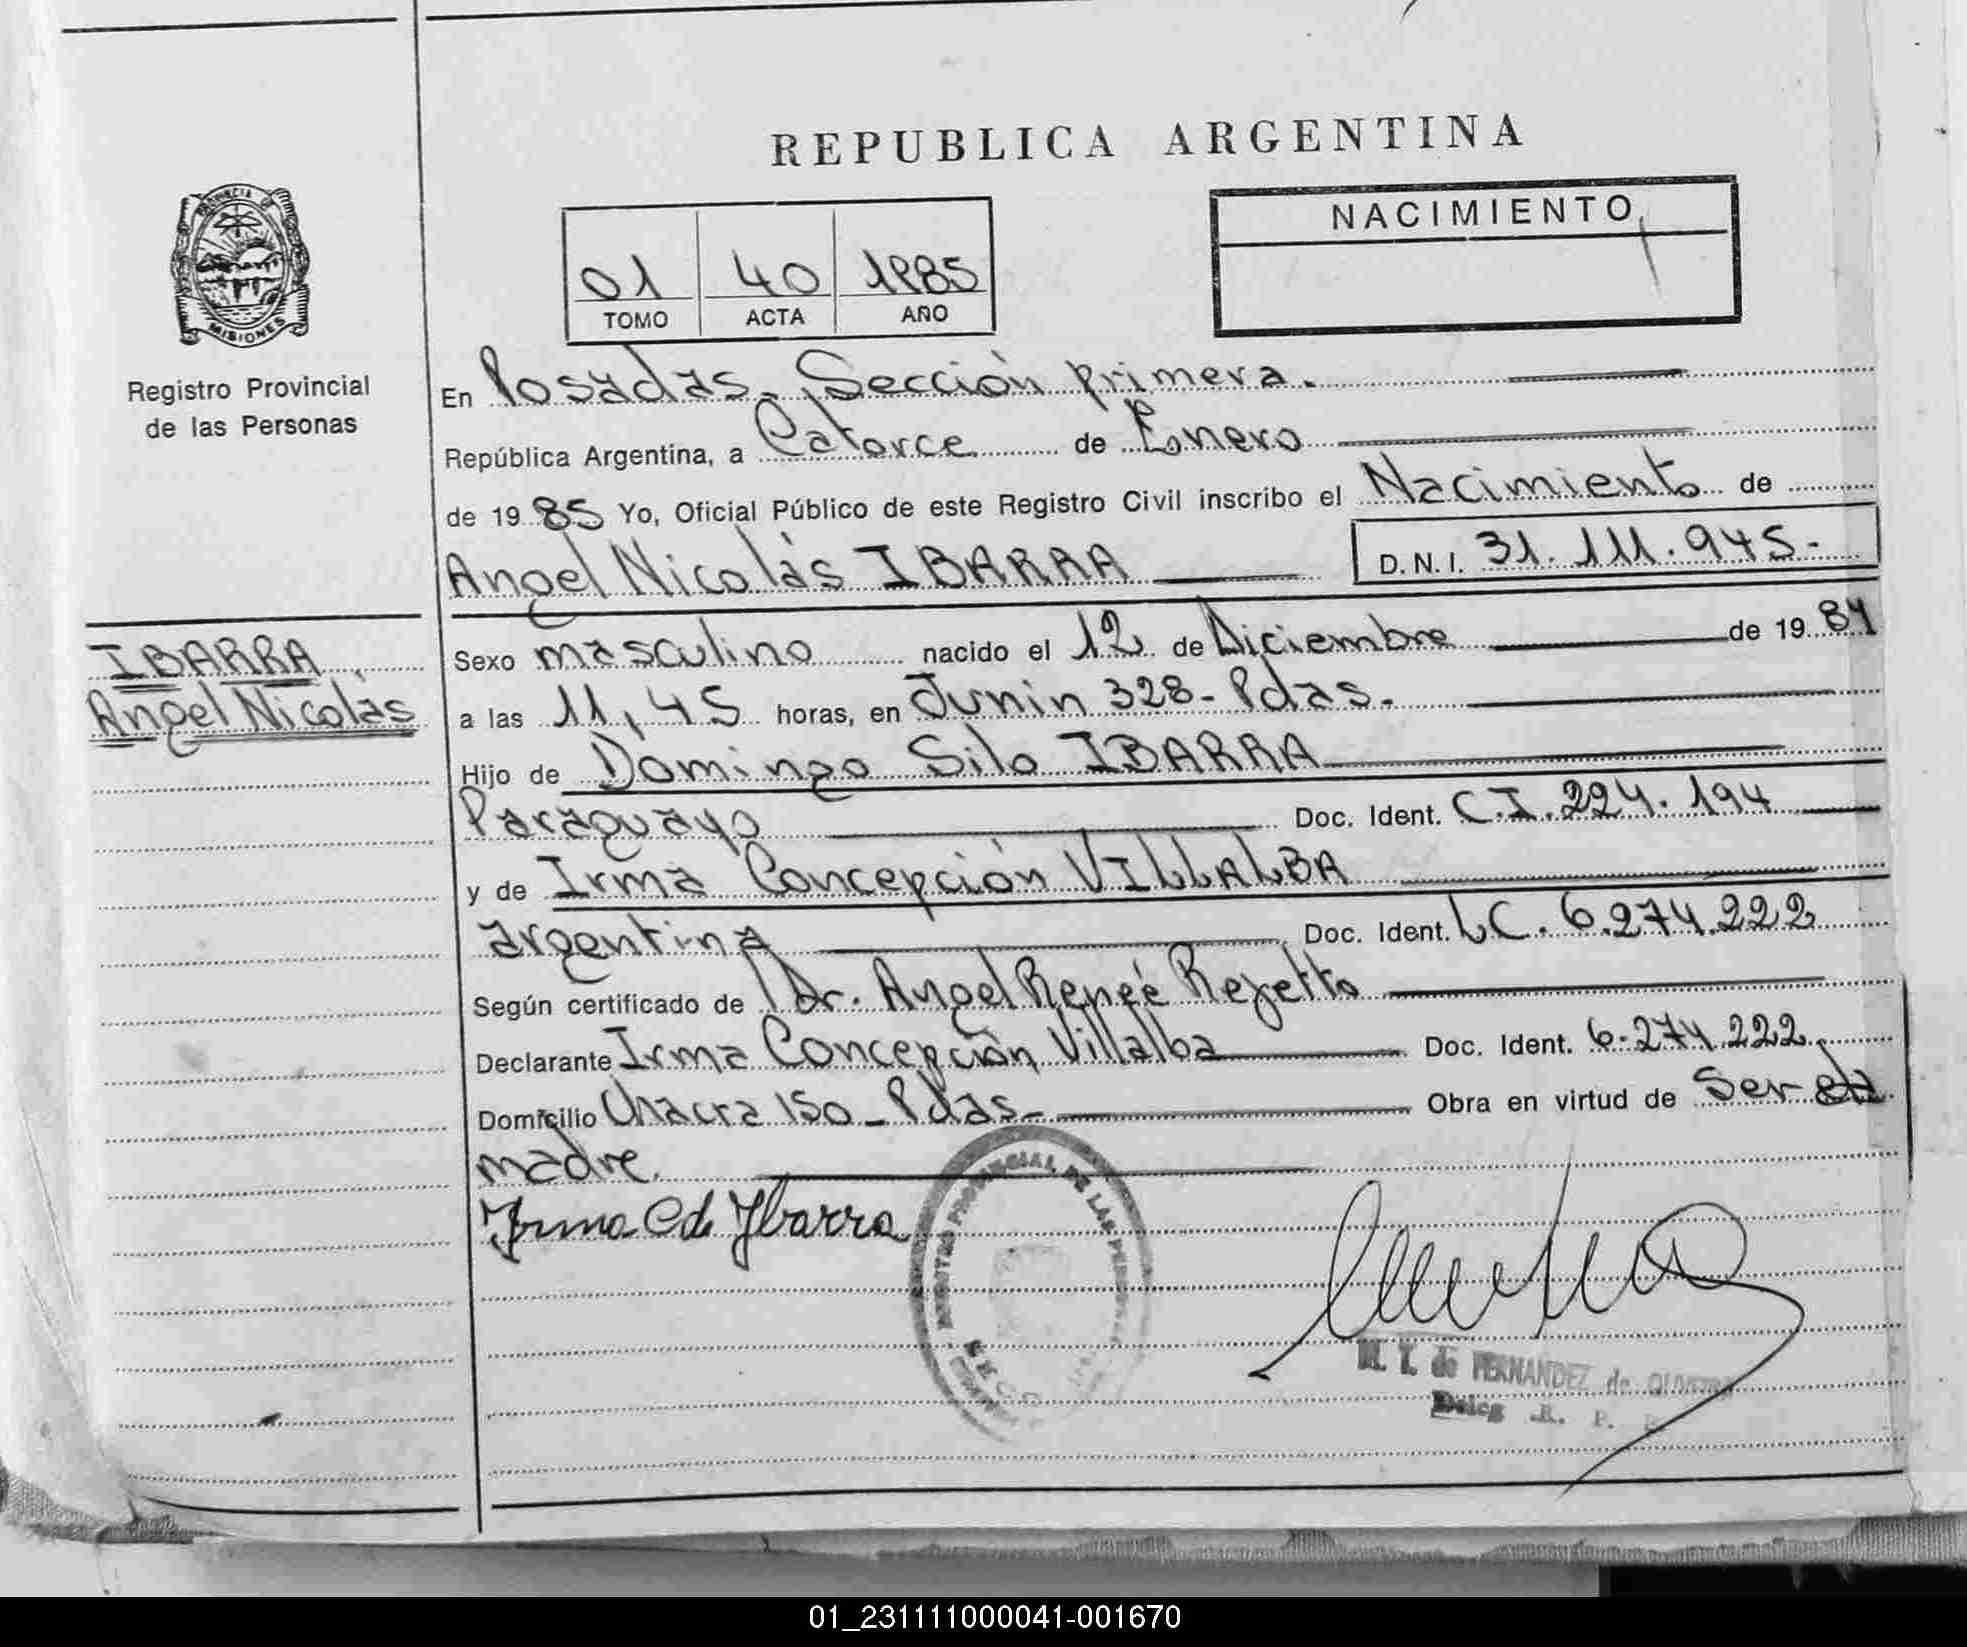 REPUBLICA ARGENTINA
PROVINCIA DE
MISIONES
Registro Provincial
de las Personas
NACIMIENTO
01 40 1985
TOMO ACTA AÑO
En Posadas. Sección primera.
República Argentina, a Catorce de Enero
de 1985 Yo, Oficial Público de este Registro Civil inscribo el Nacimiento de
Angel Nicolás IBARRA D.N.I. 31.111.945.-
IBARRA
Angel Nicolás
Sexo masculino nacido el 12 de Diciembre de 1984
a las 11,45 horas, en Junin 328- Pdas.
Hijo de Domingo Silo IBARRA
Paraguayo Doc. Ident. C.I. 224.194
y de Irma Concepción VILLALBA
argentina Doc. Ident. LC. 6.274.222
Según certificado de Dr. Angel Reneé Rejetto
Declarante Irma Concepción Villalba Doc. Ident. 6.274.222
Domicilio Chacra 150 - Pdas- Obra en virtud de Ser la
madre.
Irma C de Ybarra
REGISTRO PROVINCIAL DE LAS PERSONAS
M. T. de FERNANDEZ de OLIVEIRA
Deleg R. P. P.
01_231111000041-001670